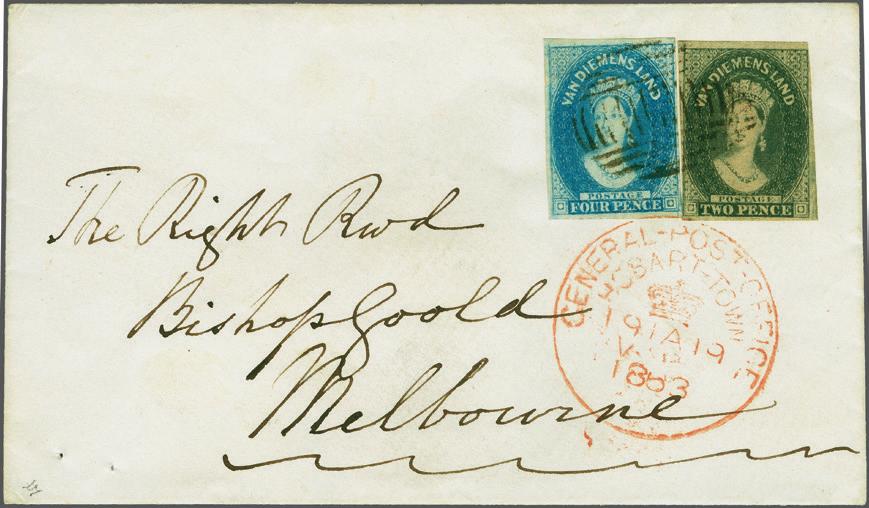 VAN DIEMENS LAND
POSTAGE
FOUR PENCE
VAN DIEMENS LAND
POSTAGE
TWO PENCE
The Right Revd
Bishop Goold
Melbourne
GENERAL-POST-OFFICE
HOBART-TOWN
19 JA 19
1863